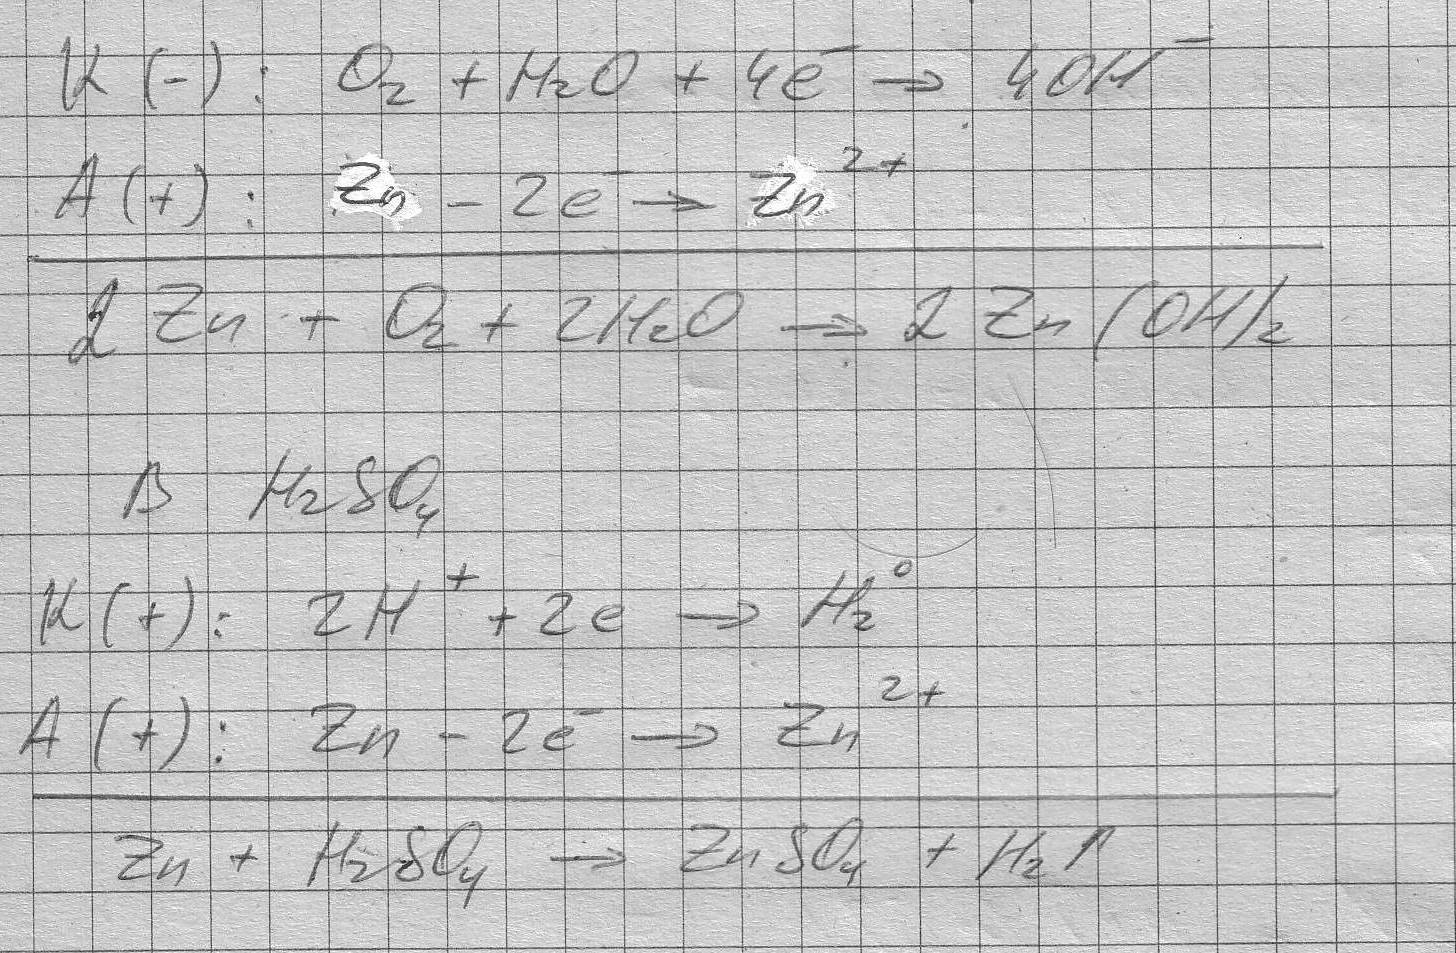 K (-) : O₂ + H₂O + 4e⁻ → 4OH⁻
A (+) : Zn - 2e⁻ → Zn²⁺
2 Zn + O₂ + 2H₂O → 2 Zn(OH)₂
В H₂SO₄
K (+) : 2H⁺ + 2e → H₂⁰
A (+) : Zn - 2e⁻ → Zn²⁺
Zn + H₂SO₄ → ZnSO₄ + H₂↑